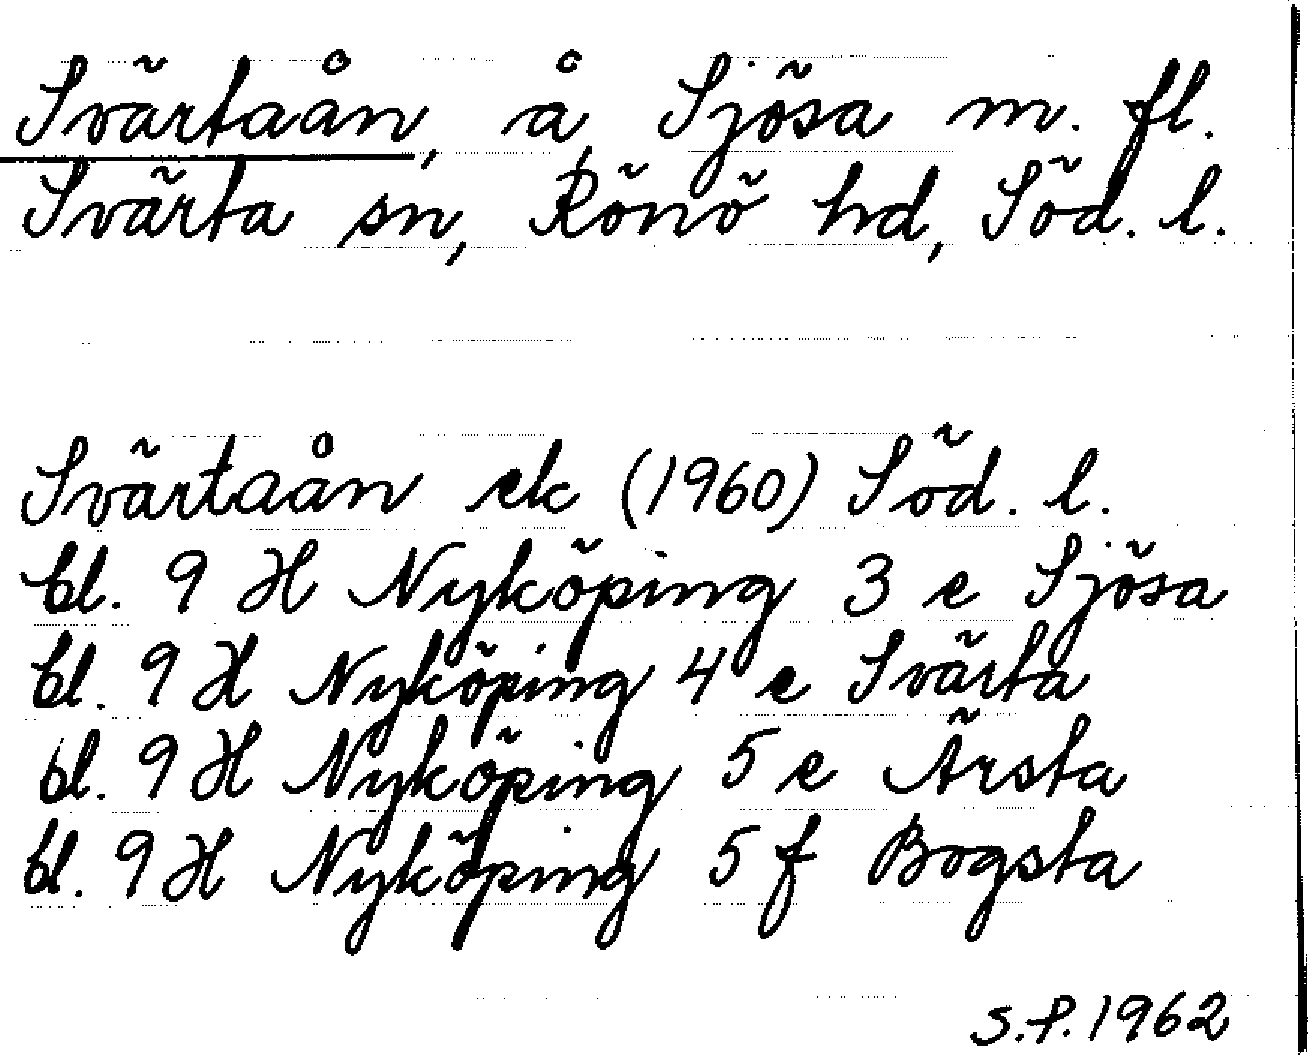 Svärtaån, å, Sjösa m. fl.
Svärta sn, Rönö hd, Söd. l.
Svärtaån ek (1960) Söd. l.
bl. 9 H Nyköping 3 e Sjösa
bl. 9 H Nyköping 4 e Svärta
bl. 9 H Nyköping 5 e Ärsta
bl. 9 H Nyköping 5 f Bogsta
S.P. 1962